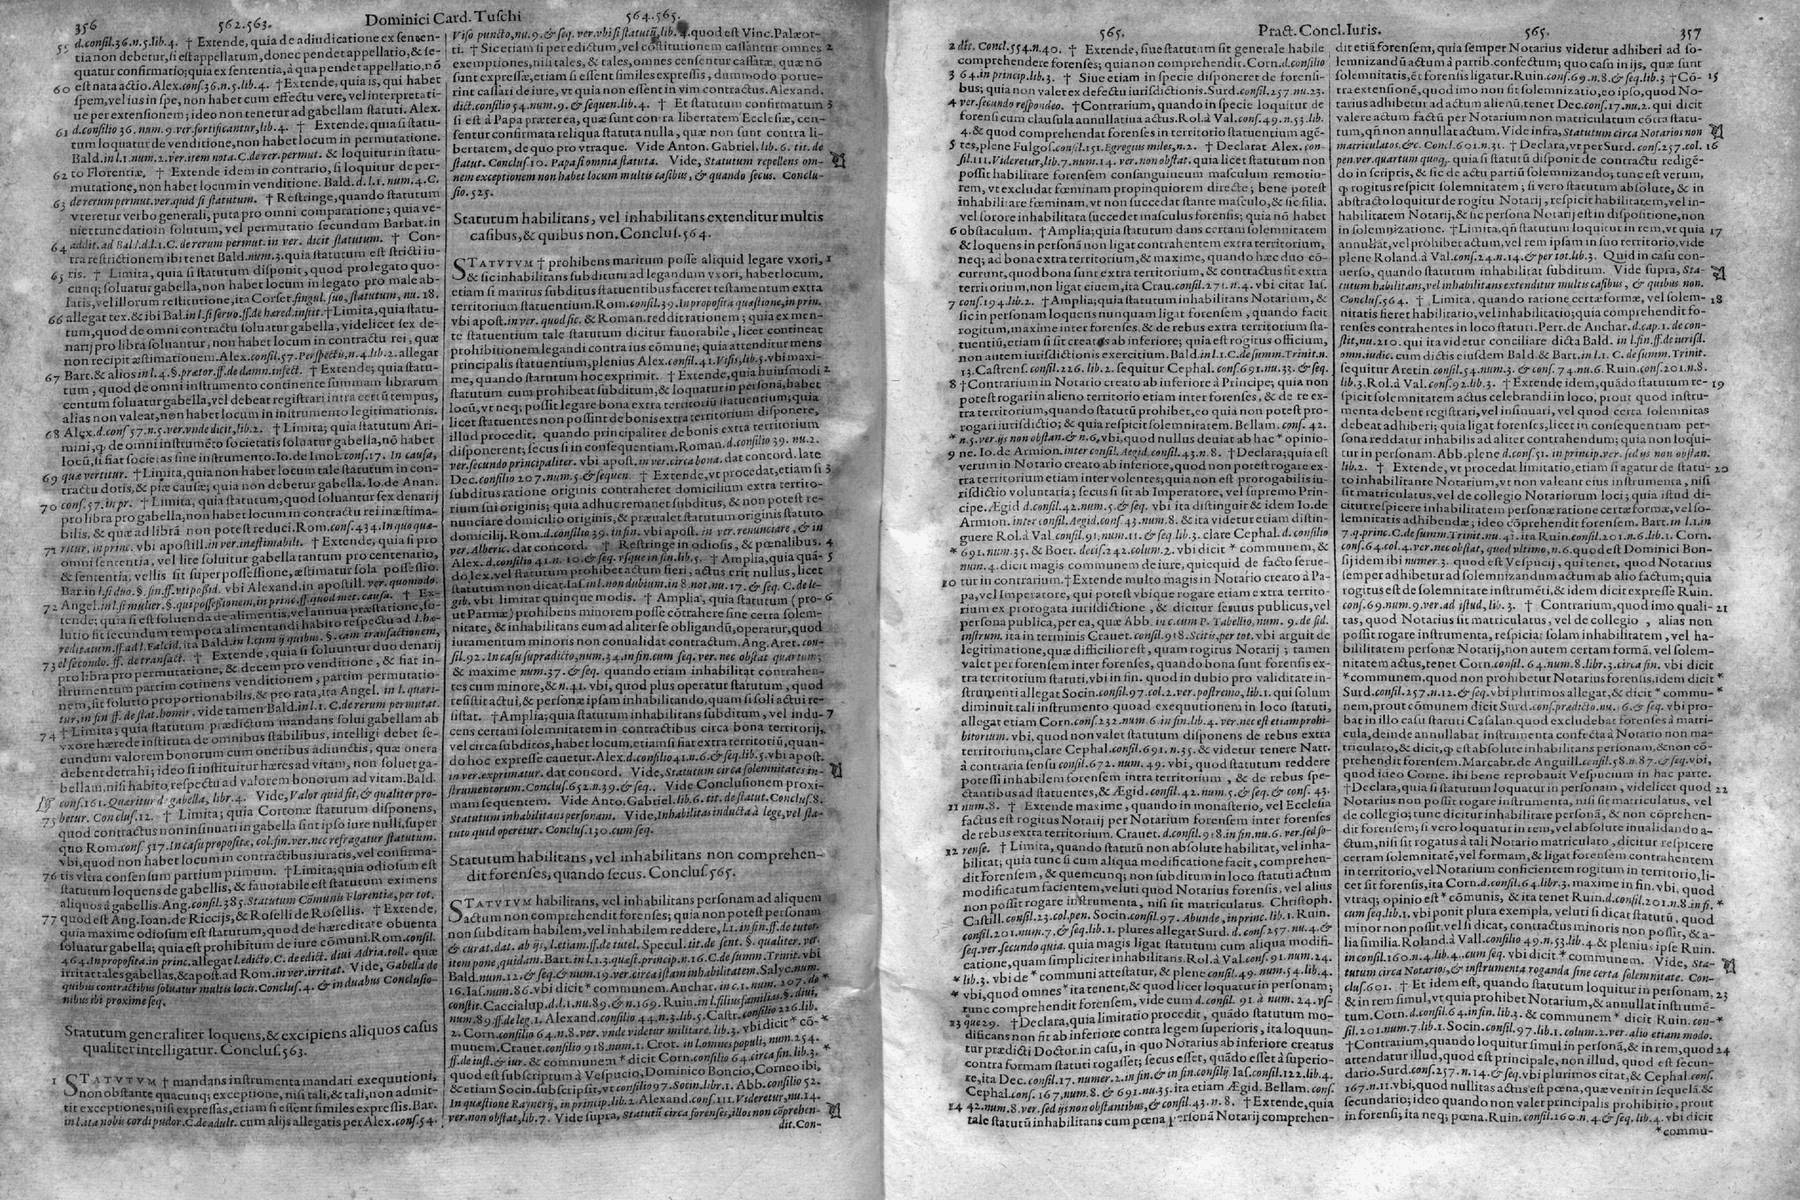 356 562.563. Dominici Card. Tuschi 564.565.
55 d.consil.36.n.5.lib.4. † Extende, quia de adiudicatione ex senten-
tia non debetur, si est appellatum, donec pendet appellatio, & se-
quatur confirmatio; quia ex sententia, à qua pendet appellatio, nõ
60 est nata actio. Alex.cons.36.n.5.lib.4. † Extende, quia is, qui habet
spem, vel ius in spe, non habet cum effectu vere, vel interpretati-
ue per extensionem; ideo non tenetur ad gabellam statuti. Alex.
61 d.consilio 36. num.9.ver.fortificantur, lib.4. † Extende, quia si statu-
tum loquatur de venditione, non habet locum in permutatione.
Bald.in l.1.num.2.ver.item nota.C.de rer.permut. & loquitur in statu-
62 to Florentiæ, † Extende idem in contrario, si loquitur de per-
mutatione, non habet locum in venditione. Bald.d.l.1.num.4.C.
63 de rerum permut.ver.quid si statutum. † Restringe, quando statutum
vteretur verbo generali, puta pro omni comparatione; quia ve-
niet tunc datio in solutum, vel permutatio secundum Barbat.in
64 addit.ad Bal.d.l.1.C.de rerum permut.in ver. dicit statutum. † Con-
tra restrictionem ibi tenet Bald.num.3.quia statutum est stricti iu-
65 ris. † Limita, quia si statutum disponit, quod pro legato quo-
cunq; soluatur gabella, non habet locum in legato pro male ab-
latis, vel illorum restitutione, ita Corset.singul. suo, statutum, nu.18.
66 allegat tex.& ibi Bal.in l.si seruo.ff.de hæred.instit.†Limita, quia statu-
tum, quod de omni contractu soluatur gabella, videlicet sex de-
narij pro libra soluantur, non habet locum in contractu rei, quæ
non recipit æstimationem. Alex.consil.57.Perspectis,n.4.lib.2. allegat
67 Bart.& alios in l.4.§.prætor.ff.de damn.infect. † Extende; quia statu-
tum, quod de omni instrumento continente summam librarum
centum soluatur gabella, vel debeat registrari intra certũ tempus,
alias non valeat, non habet locum in instrumento legitimationis.
68 Alex.d.cons 57.n.5.ver.vnde dicit,lib.2. † Limita; quia statutum Ari-
mini, q; de omni instrumẽto societatis soluatur gabella, nõ habet
locũ, si fiat societas sine instrumento. Io.de Imol.cons.17. In causa,
69 quæ vertitur. †Limita, quia non habet locum tale statutum in con-
tractu dotis, & piæ causæ; quia non debetur gabella. Io.de Anan.
70 cons.57.in pr. † Limita, quia statutum, quod soluantur sex denarij
pro libra pro gabella, non habet locum in contractu rei inæstima-
bilis, & quæ ad librã non potest reduci.Rom.cons.434.In quo quæ-
71 ritur.in princ. vbi apostill.in ver.inæstimabilt. † Extende, quia si pro
omni sententia, vel lite soluatur gabella tantum pro centenario,
& sententia, vel lis sit super possessione, æstimatur sola possessio.
Bar.in l.si duo.§.fin.ff.vti possid. vbi Alexand.in apostill.ver.quomodo.
72 Angel.in l.si mulier.§.qui possessionem,in princ.ff.quod met.causa. † Ex-
tende; quia si est soluenda de alimentis, vel annua præstatione, so-
lutio fit secundum tempora alimentandi habito respectu ad l.hæ-
reditatum.ff.ad l.Falcid.ita Bald.in l.cum ij quibus.§.eam transactionem,
73 el secondo. ff. de transact. † Extende, quia si soluuntur duo denarij
pro libra pro permutatione, & decem pro venditione, & fiat in-
strumentum partim cotinens venditionem, partim permutatio-
nem, fit solutio proportionabilis.& pro rata, ita Angel. in l.quari-
tur,in fin ff.de stat.homin. vide tamen Bald.in l.1.C.de rerum permutat.
74 † Limita; quia statutum prædictum mandans solui gabellam ab
vxore hærede instituta de omnibus stabilibus, intelligi debet se-
cundum valorem bonorum cum oneribus adiunctis, quæ onera
debent detrahi; ideo si instituitur hæres ad vitam, non soluet ga-
bellam, nisi habito respectu ad valorem bonorum ad vitam.Bald.
cons.161.Quæritur de gabella, libr.4. Vide, Valor quid sit, & qualiter pro-
75 betur. Conclus.12. † Limita; quia Cortonæ statutum disponens,
quod contractus non insinuati in gabella sint ipso iure nulli, super
quo Rom.cons.517.In casu propositæ, col.fin.ver.nec refragatur statutum.
vbi, quod non habet locum in contractibus iuratis, vel confirma-
76 tis vltra consensum partium primum. †Limita; quia odiosum est
statutum loquens de gabellis, & fauorabile est statutum eximens
aliquos à gabellis. Ang.cons.385.Statutum Cõmunis Florentiæ,per tot.
77 quod est Ang.Ioan.de Riccijs,& Roselli de Rosellis. †Extende,
quia maxime odiosum est statutum, quod de hæreditate obuenta
soluatur gabella; quia est prohibitum de iure cõmuni.Rom.consil.
464.In proposita.in princ.allegat l.edicto.C.de edict. diui Adria.toll. quæ
irritat tales gabellas,& apost.ad Rom.in ver.irritat. Vide, Gabella de
quibus contractibus soluatur multis locis.Conclus.4. & in duabus Conclusio-
nibus ibi proxime seq.
Statutum generaliter loquens, & excipiens aliquos casus
qualiter intelligatur. Conclus.563.
1 STATVTVM † mandans instrumenta mandari exequutioni,
non obstante quacunq; exceptione, nisi tali, & tali, non admit-
tit exceptiones, nisi expressas, etiam si essent similes expressis. Bar.
in l.ita nobis cordi pudor.C.de adult. cum alijs allegatis per Alex.cons.54.
Viso puncto,nu.9.& seq. ver.vbi si statutũ,lib.4.quod est Vinc.Palæot-
ti. † Sic etiam si per edictum, vel cõstitutionem cassantur omnes 2
exemptiones, nisi tales, & tales, omnes censentur cassatæ, quæ nõ
sunt expressæ, etiam si essent similes expressis, dummodo potue-
rint cassari de iure, vt quia non essent in vim contractus. Alexand.
dict.consilio 54.num.9. & sequen.lib.4. † Et statutum confirmatum 3
si est à Papa præterea, quæ sunt contra libertatem Ecclesiæ, cen-
sentur confirmata reliqua statuta nulla, quæ non sunt contra li-
bertatem, de quo pro vtraque. Vide Anton. Gabriel. lib. 6. tit. de
statut. Conclus.10. Papa si omnia statuta. Vide, Statutum repellens om-
nem exceptionem non habet locum multis casibus, & quando secus. Conclu-
sio.525.
Statutum habilitans, vel inhabilitans extenditur multis
casibus, & quibus non. Conclus.564.
STATVTVM † prohibens maritum posse aliquid legare vxori, 1
& sic inhabilitans subditum ad legandum vxori, habet locum,
etiam si maritus subditus statuentibus faceret testamentum extra
territorium statuentium. Rom.consil.39.In proposita quæstione,in prin.
vbi apost.in ver. quod sic. & Roman. reddit rationem; quia ex men-
te statuentium tale statutum dicitur fauorabile, licet contineat
prohibitionem legandi contra ius cõmune; quia attenditur mens
principalis statuentium, plenius Alex.consil.41.Visis,lib.5.vbi maxi-
me, quando statutum hoc exprimit. † Extende, quia huiusmodi 2
statutum cum prohibeat subditum, & loquatur in persona, habet
locũ, vt neq; possit legare bona extra territoriũ statuentium; quia
licet statuentes non possint de bonis extra territorium disponere,
illud procedit. quando principaliter de bonis extra territorium
disponerent; secus si in consequentiam. Roman.d.consilio 39. nu.2.
ver.secundo principaliter. vbi apost. in ver.circa bona. dat concord. late
Dec.consilio 207.num.5.& sequen. † Extende, vt procedat, etiam si 3
subditus ratione originis contraheret domicilium extra territo-
rium sui originis; quia adhuc remanet subditus, & non potest re-
nunciare domicilio originis, & præualet statutum originis statuto
domicilij.Rom.d.consilio 39.in fin.vbi apost. in ver.renunciare, & in
ver.Alberic. dat concord. † Restringe in odiosis, & pœnalibus. 4
Alex. d.consilio 41.n. 10.& seq. vsque in fin.lib.5. † Amplia, quia quã- 5
do lex, vel statutum prohibet actum fieri, actus erit nullus, licet
statutum non dicat. Ias.in l.non dubium,in 8.not.nu.17.& seq.C.de le-
gib. vbi limitat quinque modis. † Amplia, quia statutum (pro- 6
ut Parmæ) prohibens minorem posse cõtrahere sine certa solem-
nitate, & inhabilitans eum ad aliter se obligandũ, operatur, quod
iuramentum minoris non conualidat contractum. Ang.Aret.con-
sil.92. In casu supradicto,num.34.in fin.cum seq. ver. nec obstat quartum;
& maxime num.37.& seq. quando etiam inhabilitat contrahen-
tes cum minore, & n.41. vbi, quod plus operatur statutum, quod
resistit actui, & personæ ipsam inhabilitando, quam si soli actui re-
sistat. †Amplia; quia statutum inhabilitans subditum, vel indu- 7
cens certam solemnitatem in contractibus circa bona territorij,
vel circa subditos, habet locum, etiam si fiat extra territoriũ, quan-
do hoc expresse cauetur. Alex.d.consilio 41.n.6.& seq.lib.5. vbi apost.
in ver.exprimatur. dat concord. Vide, Statutum circa solemnitates in-
strumentorum.Conclus.652.n.39.& seq.. Vide Conclusionem proxi-
mam sequentem. Vide Anto. Gabriel.lib.6. tit. de statut. Conclus.8.
Statutum inhabilitans personam. Vide, Inhabilitas inducta à lege, vel sta-
tuto quid operetur. Conclus.130.cum seq.
Statutum habilitans, vel inhabilitans non comprehen-
dit forenses, quando secus. Conclus.565.
STATVTVM habilitans, vel inhabilitans personam ad aliquem
actum non comprehendit forenses; quia non potest personam
non subditam habilem, vel inhabilem reddere, l.1.in fin.ff.de tutor.
& curat.dat. ab ijs, l.etiam.ff.de tutel. Specul. tit.de sent. §. qualiter. ver.
item pone, quidam. Bart.in l.1.3.quæst.princip.n.16.C.de summ.Trinit. vbi
Bald.num.12.& seq.& num.19.ver.circa istam inhabilitatem.Salyc.num.
16.Ias.num.86.vbi dicit * communem.Anchar. in c.1. num. 207. de
constit.Caccialup.d.l.1.nu.89.& n.169. Ruin.in l.filiusfamilias.§.diui,
num.89.ff.de leg.1. Alexand.consilio 44.n.3.lib.5. Castr.consilio 226.lib.
2. Corn.consilio 64.n.8. ver. vnde videtur militare. lib.3. vbi dicit * cõ-
munem. Crauet.consilio 918.num.1. Crot. in l.omnes populi, num.254.
ff.de iust.& iur. & communem * dicit Corn.consilio 64.circa fin.lib.3.
quod est subscriptum à Vespucio, Dominico Boncio, Corneo ibi,
& etiam Socin.subscripsit, vt consilio 97.Socin.libr.1. Abb.consilio 52.
In quæstione Raynerij, in princip.lib.2. Alexand.cons.111.Videretur,nu.14.
ver.non obstat,lib.7. Vide supra, Statutũ circa forenses, illos non cõprehen-
dit.Con-
565. Pract. Concl. Iuris. 565. 357
2 dit. Concl.554.n.40. † Extende, siue statutum sit generale habile
comprehendere forenses; quia non comprehendit. Corn.d.consilio
3 64.in princip.lib.3. † Siue etiam in specie disponeret de forensi-
bus; quia non valet ex defectu iurisdictionis. Surd.cons.257.nu.23.
4 ver.secundo respondeo. †Contrarium, quando in specie loquitur de
forensi cum clausula annullatiua actus. Rol.à Val.cons.49.n.55.lib.
4. & quod comprehendat forenses in territorio statuentium agẽ-
5 tes, plene Fulgos.consil.151.Egregius miles,n.2. † Declarat Alex.con-
sil.111.Videretur,lib.7.num.14. ver.non obstat. quia licet statutum non
possit habilitare forensem consanguineum masculum remotio-
rem, vt excludat fœminam propinquiorem directe; bene potest
inhabilitare fœminam, vt non succedat stante masculo, & sic filia.
vel sorore inhabilitata succedet masculus forensis; quia nõ habet
6 obstaculum. † Amplia; quia statutum dans certam solemnitatem
& loquens in personã non ligat contrahentem extra territorium,
neq; ad bona extra territorium, & maxime, quando hæc duo cõ-
currunt, quod bona sunt extra territorium, & contractus sit extra
territorium, non ligat ciuem, ita Crau.consil.271.n.4. vbi citat Ias.
7 cons.194.lib.2. † Amplia; quia statutum inhabilitans Notarium, &
sic in personam loquens nunquam ligat forensem, quando facit
rogitum, maxime inter forenses, & de rebus extra territorium sta-
tuentiũ, etiam si sit creatus ab inferiore; quia est rogitus officium,
non autem iurisdictionis exercitium. Bald.in l.1.C.de summ.Trinit.n.
13.Castrens.consil.226.lib.2.sequitur Cephal.cons.691.nu.33.& seq.
8 †Contrarium in Notario creato ab inferiore à Principe; quia non
potest rogari in alieno territorio etiam inter forenses, & de re ex-
tra territorium, quando statutum prohibet, eo quia non potest pro-
rogari iurisdictio; & quia respicit solemnitatem. Bellam. cons. 42.
* n.5.ver.ijs non obstan.& n.6, vbi, quod nullus deuiat ab hac * opinio-
9 ne. Io.de Armion.inter consil. Aegid.cons.43.n.8. †Declara; quia est
verum in Notario creato ab inferiore, quod non potest rogare ex-
tra territorium etiam inter volentes; quia non est prorogabilis iu-
risdictio voluntaria; secus si sit ab Imperatore, vel supremo Prin-
cipe. Ægid d.consil.42.num.5.& seq. vbi ita distinguit & idem Io.de
Armion. inter consil. Aegid.cons.43.num.8. & ita videtur etiam distin-
guere Rol.à Val.consil.91.num.11.& seq.lib.3. clare Cephal. d.consilio
* 691.num.35. & Boer. decis.242.colum.2. vbi dicit * communem, &
num.4.dicit magis communem de iure, quicquid de facto serue-
10 tur in contrarium. †Extende multo magis in Notario creato à Pa-
pa, vel Imperatore, qui potest vbique rogare etiam extra territo-
rium ex prorogata iurisdictione, & dicitur seruus publicus, vel
persona publica, per ea, quæ Abb. in c.cum P. Tabellio, num. 9. de fid.
instrum. ita in terminis Crauet.consil.918.Scitis,per tot. vbi arguit de
legitimatione, quæ difficilior est, quam rogitus Notarij; tamen
valet per forensem inter forenses, quando bona sunt forensis ex-
tra territorium statuti, vbi in fin. quod in dubio pro validitate in-
strumenti allegat Socin.consil.97.col.2.ver.postremo,lib.1. qui solum
diminuit tali instrumento quoad exequutionem in loco statuti,
allegat etiam Corn.cons.232.num.6.in fin.lib.4. ver.nec est etiam prohi-
bitorum. vbi, quod non valet statutum disponens de rebus extra
territorium, clare Cephal.consil.691.n.35. & videtur tenere Natt.
à contraria sensu consil.672. num.49. vbi, quod statutum reddere
potest inhabilem forensem intra territorium, & de rebus spe-
ctantibus ad statuentes, & Ægid. consil.42. num.5.& seq. & cons. 43.
11 num.8. † Extende maxime, quando in monasterio, vel Ecclesia
factus est rogitus Notarij per Notarium forensem inter forenses
de rebus extra territorium. Crauet. d.consil.918.in fin.nu.6. ver.sed fo-
12 rense. † Limita, quando statutũ non absolute habilitat, vel inha-
bilitat; quia tunc si cum aliqua modificatione facit, comprehen-
dit Forensem, & quemcunq; non subditum in loco statuti actum
modificatum facientem, veluti quod Notarius forensis, vel alius
non possit rogare instrumenta, nisi sit matriculatus. Christoph.
Castill.cons.23.col.pen. Socin.cons.97. Abunde,in princ. lib.1. Ruin.
cons.201.num.7.& seq.lib.1. plures allegat Surd. d. cons.257.nu.4.&
seq.ver.secundo quia. quia magis ligat statutum cum aliqua modifi-
catione, quam simpliciter inhabilitans. Rol.à Val.cons.91.num.24.
* lib.3. vbi de * communi attestatur, & plene cons.49. num.54. lib.4.
* vbi, quod omnes * ita tenent, & quod licet loquatur in personam;
tunc comprehendit forensem, vide eum d.consil. 91. à num.24. vs-
13 que 29. †Declara, quia limitatio procedit, quãdo statutum mo-
dificans non fit ab inferiore contra legem superioris, ita loquun-
tur prædicti Doctor.in casu, in quo Notarius ab inferiore creatus
contra formam statuti rogasset; secus esset, quãdo esset à superio-
re, ita Dec.consil.17. numer.2.in fin.& in fin.consilij. Ias.consil.122. lib.4.
Cephal.cons. 167,num.8. & 691.nu.35.ita etiam Ægid. Bellam.cons.
14 42.num.8.ver.sed ijs non obstantibus,& consil.43.n. 8. † Extende, quia
tale statutũ inhabilitans cum pœna personã Notarij comprehen-
dit etiã forensem, quia semper Notarius videtur adhiberi ad so-
lemnizandũ actum à partib.confectum; quo casu in ijs, quæ sunt
solemnitatis, et forensis ligatur. Ruin.cons.69.n.8.& seq.lib.3 † Cõ- 15
tra extensionẽ, quod imo non sit solemnizatio, eo ipso, quod No-
tarius adhibetur ad actum alienũ, tenet Dec.cons.17.nu.2. qui dicit
valere actum factũ per Notarium non matriculatum cõtra statu-
tum, qñ non annullat actum. Vide infra, Statutum circa Notarios non
matriculatos,&c. Concl.601.n.31. † Declara, vt per Surd.cons.257.col. 16
pen.ver.quartum quoq;. quia si statutũ disponit de contractu redigẽ-
do in scriptis, & sic de actu partiũ solemnizando; tunc est verum,
q; rogitus respicit solemnitatem; si vero statutum absolute, & in
abstracto loquitur de rogitu Notarij, respicit habilitatem, vel in-
habilitatem Notarij, & sic persona Notarij est in dispositione, non
in solemnizatione. †Limita, qñ statutum loquitur in rem, vt quia 17
annullat, vel prohibet actum, vel rem ipsam in suo territorio, vide
plene Roland.à Val.cons.24.n.14.& per tot.lib.3. Quid in casu con-
uerso, quando statutum inhabilitat subditum. Vide supra, Sta-
tutum habilitans, vel inhabilitans extenditur multis casibus, & quibus non.
Conclus.564. † Limita, quando ratione certæ formæ, vel solem- 18
nitatis fieret habilitatio, vel inhabilitatio; quia comprehendit fo-
renses contrahentes in loco statuti. Petr. de Anchar.d.cap.1.de con-
stit.nu.210. qui ita videtur conciliare dicta Bald. in l.fin.ff.de iurisd.
omn.iudic. cum dictis eiusdem Bald.& Bart.in l.1. C. de summ.Trinit.
sequitur Aretin consil.54.num.3.& cons.74.nu.6. Ruin.cons.201.n.8.
lib.3.Rol.à Val.cons.92.lib.3. † Extende idem, quãdo statutum re- 19
spicit solemnitatem actus celebrandi in loco, prout quod instru-
menta debent registrari, vel insinuari, vel quod certa solemnitas
debeat adhiberi; quia ligat forenses, licet in consequentiam per-
sona reddatur inhabilis ad aliter contrahendum; quia non loqui-
tur in personam. Abb. plene d.cons.51. in princip.ver. sed ijs non obstan.
lib.2. † Extende, vt procedat limitatio, etiam si agatur de statu- 20
to inhabilitante Notarium, vt non valeant eius instrumenta, nisi
sit matriculatus, vel de collegio Notariorum loci; quia istud di-
citur respicere inhabilitatem personæ ratione certæ formæ, vel so-
lemnitatis adhibendæ; ideo cõprehendit forensem. Bart. in l.1.in
7.q.princ.C.de summ.Trinit.nu.45. ita Ruin.cons.201.n.6.lib.1. Corn.
cons.64.col.4. ver.nec obstat, quod vltimo, n.6. quod est Dominici Bon-
sij idem ibi numer.3. quod est Vespucij, qui tenet, quod Notarius
semper adhibetur ad solemnizandum actum ab alio factum; quia
rogitus est de solemnitate instrumẽti, & idem dicit expresse Ruin.
cons.69.num.9.ver.ad istud, lib.3. † Contrarium, quod imo quali- 21
tas, quod Notarius sit matriculatus, vel de collegio, alias non
possit rogare instrumenta, respiciat solam inhabilitatem, vel ha-
bilitatem personæ Notarij, non autem certam formã, vel solem-
nitatem actus, tenet Corn.cons.64. num.8.libr.3.circa fin. vbi dicit
*communem, quod non prohibetur Notarius forensis, idem dicit *
Surd.cons.257.n.12.& seq.vbi plurimos allegat, & dicit * commu- *
nem, prout cõmunem dicit Surd.cons.prædicto.nu.6.& seq. vbi pro-
bat in illo casu statuti Casalan.quod excludebat forenses à matri-
cula, deinde annullabat instrumenta confecta à Notario non ma-
triculato, & dicit, q; est absolute inhabilitans personam, & non cõ-
prehendit forensem. Marcabr.de Anguill.consil.58.n.87.& seq.vbi,
quod ideo Corne. ibi bene reprobauit Vespucium in hac parte.
†Declara, quia si statutum loquatur in personam, videlicet quod 22
Notarius non possit rogare instrumenta, nisi sit matriculatus, vel
de collegio; tunc dicitur inhabilitare personã, & non cõprehen-
dit forensem; si vero loquatur in rem, vel absolute inualidando a-
ctum, nisi sit rogatus à tali Notario matriculato, dicitur respicere
certam solemnitatẽ, vel formam, & ligat forensem contrahentem
in territorio, vel Notarium conficientem rogitum in territorio, li-
cet sit forensis, ita Corn.d.cons.64.libr.3. maxime in fin. vbi, quod
vtraq; opinio est* cõmunis, & ita tenet Ruin.d.cons.201.n.8.in fi. *
cum seq.lib.1. vbi ponit plura exempla, veluti si dicat statutũ, quod
minor non possit, vel si dicat, contractus minoris non possit, & a-
lia similia. Roland. à Vall.consilio 49.n.53.lib.4 & plenius ipse Ruin.
in consil.160.n.4.lib.4..cum seq. vbi dicit * communem. Vide, Sta- *
tutum circa Notarios,& instrumenta roganda sine certa solemnitate. Con-
clus.601. † Et idem est, quando statutum loquitur in personam, 23
& in rem simul, vt quia prohibet Notarium, & annullat instrumẽ-
tum.Corn.d.consil.64.in fin.lib.3. & communem* dicit Ruin.con- *
sil.201.num.7.lib.1. Socin.consil.97.lib.1. colum.2.ver. alio etiam modo.
†Contrarium, quando loquitur simul in personã, & in rem, quod 24
attendatur illud, quod est principale, non illud, quod est secun-
dario. Surd.cons.257.n.14.& seq.vbi plurimos citat, & Cephal.cons.
167.n.11.vbi, quod nullitas actus est pœna, quæ venit in sequelã &
secundario; ideo quando non valet principalis prohibitio, prout
in forensi, ita neq; pœna. Ruin.cons.160.n.4.& seq. lib.4. vbi dicit
*commu-